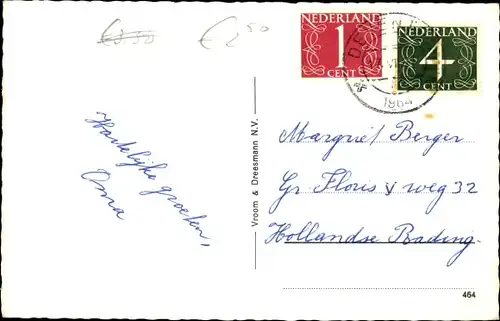 €3.50
€ 2,50
NEDERLAND
1
CENT
NEDERLAND
4
CENT
1964
Hartelijke groeten,
Oma
Vroom & Dreesmann N.V.
Margriet Berger
Gr Floris v weg 32
Hollandse Rading
464